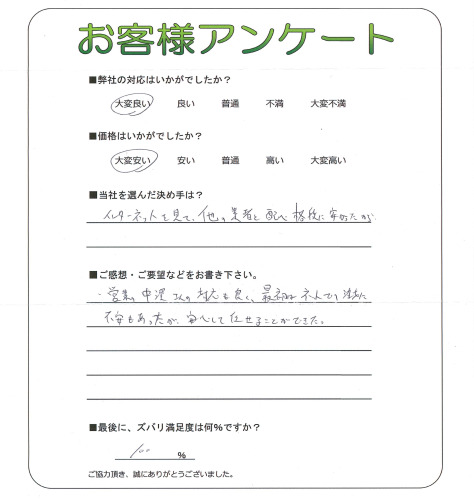 お客様アンケート
■弊社の対応はいかがでしたか?
大変良い 良い 普通 不満 大変不満
■価格はいかがでしたか?
大変安い 安い 普通 高い 大変高い
■当社を選んだ決め手は?
インターネットを見て、他の業者と 格段に安かったが
■ご感想・ご要望などをお書き下さい。
・営業の中澤さんの対応も良く、最初は ネットでの
不安もあったが、安心して任せることができた。
■最後に、ズバリ満足度は何%ですか?
100 %
ご協力頂き、誠にありがとうございました。